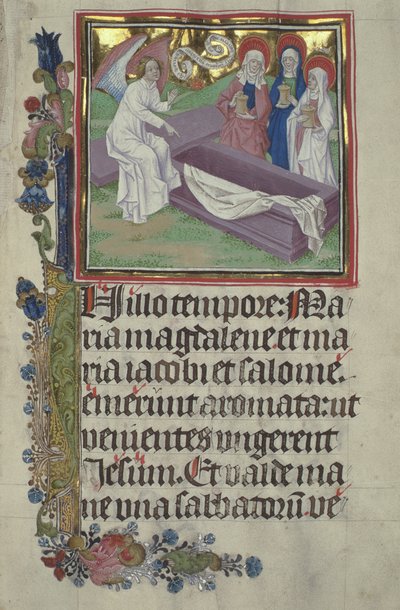 In illo tempore: Ma
ria magdalene. et ma
ria iacobi et salome.
emerunt aromata: ut
venientes ungerent
Jesum. Et valde ma
ne una sabbatorū. ve